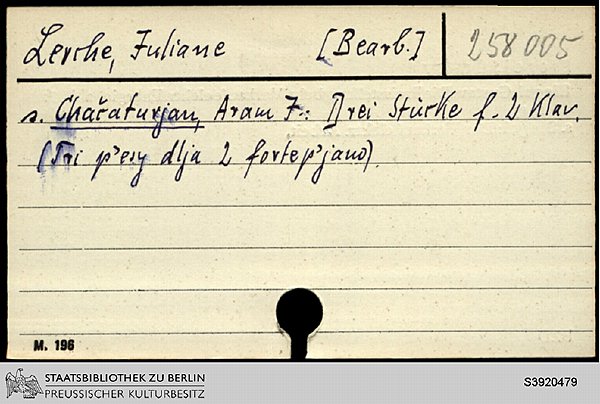 Lerche, Juliane [Bearb.] 258005
s. Chačaturjan, Aram I.: Drei Stücke f. 2 Klav.
(Tri p'esy dlja 2 fortep'jano).
M. 196
STAATSBIBLIOTHEK ZU BERLIN
PREUSSISCHER KULTURBESITZ
S3920479